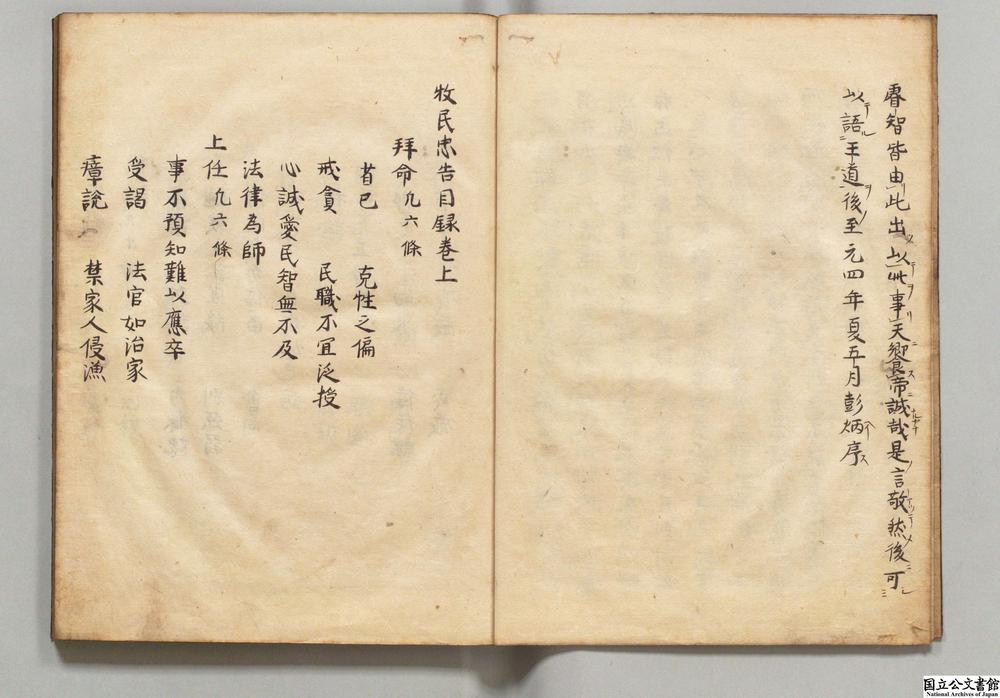 睿智皆由此出以此事天饗帝誠哉是言敬然後可
以語王道後至元四年夏五月彭炳序
牧民忠告目録巻上
拝命凡六條
省已 克性之偏
戒貪 民職不宜泛授
心誠愛民智無不及
法律為師
上任凡六條
事不預知難以應卒
受謁 法官如治家
瘴說 禁家人侵漁
国立公文書館
National Archives of Japan